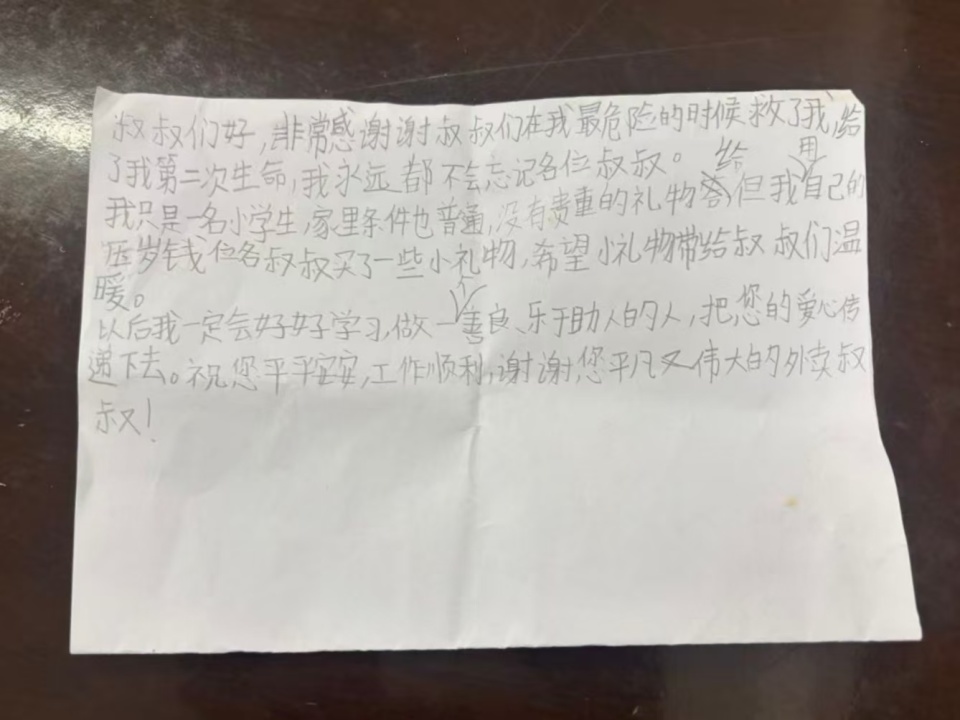 叔叔们好,非常感谢谢叔叔们在我最危险的时候救了我,给
了我第二次生命,我永远都不会忘记各位叔叔。
我只是一名小学生,家里条件也普通,没有贵重的礼物给,但我用自己的
压岁钱给各叔叔买了一些小礼物,希望小礼物带给叔叔们温
暖。
以后我一定会好好学习,做一个善良、乐于助人的人,把您的爱心传
递下去。祝您平平安安,工作顺利,谢谢您平凡又伟大的外卖叔
叔!